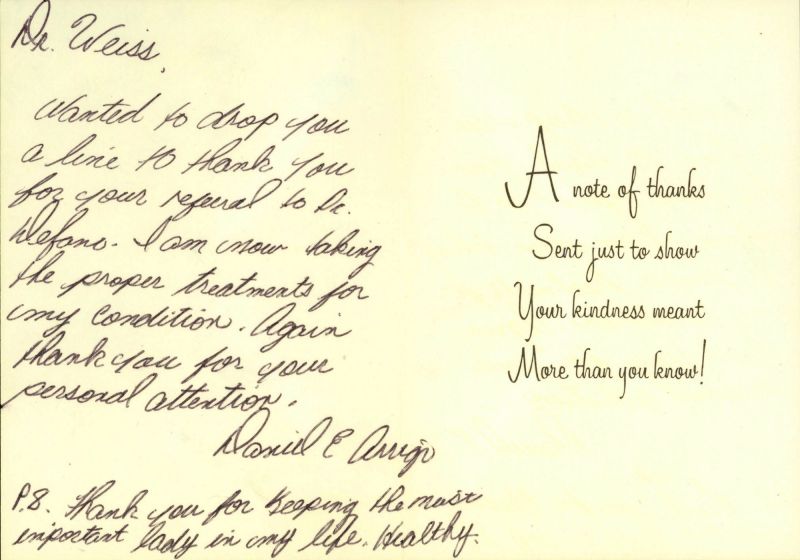 Dr. Weiss,
Wanted to drop you
a line to thank you
for your referal to Dr.
Defano. I am now taking
the proper treatments for
my condition. Again
thank you for your
personal attention.
Daniel E Arrigo
P.S. Thank you for Keeping the most
important lady in my life. Healthy.
A note of thanks
Sent just to show
Your kindness meant
More than you know!